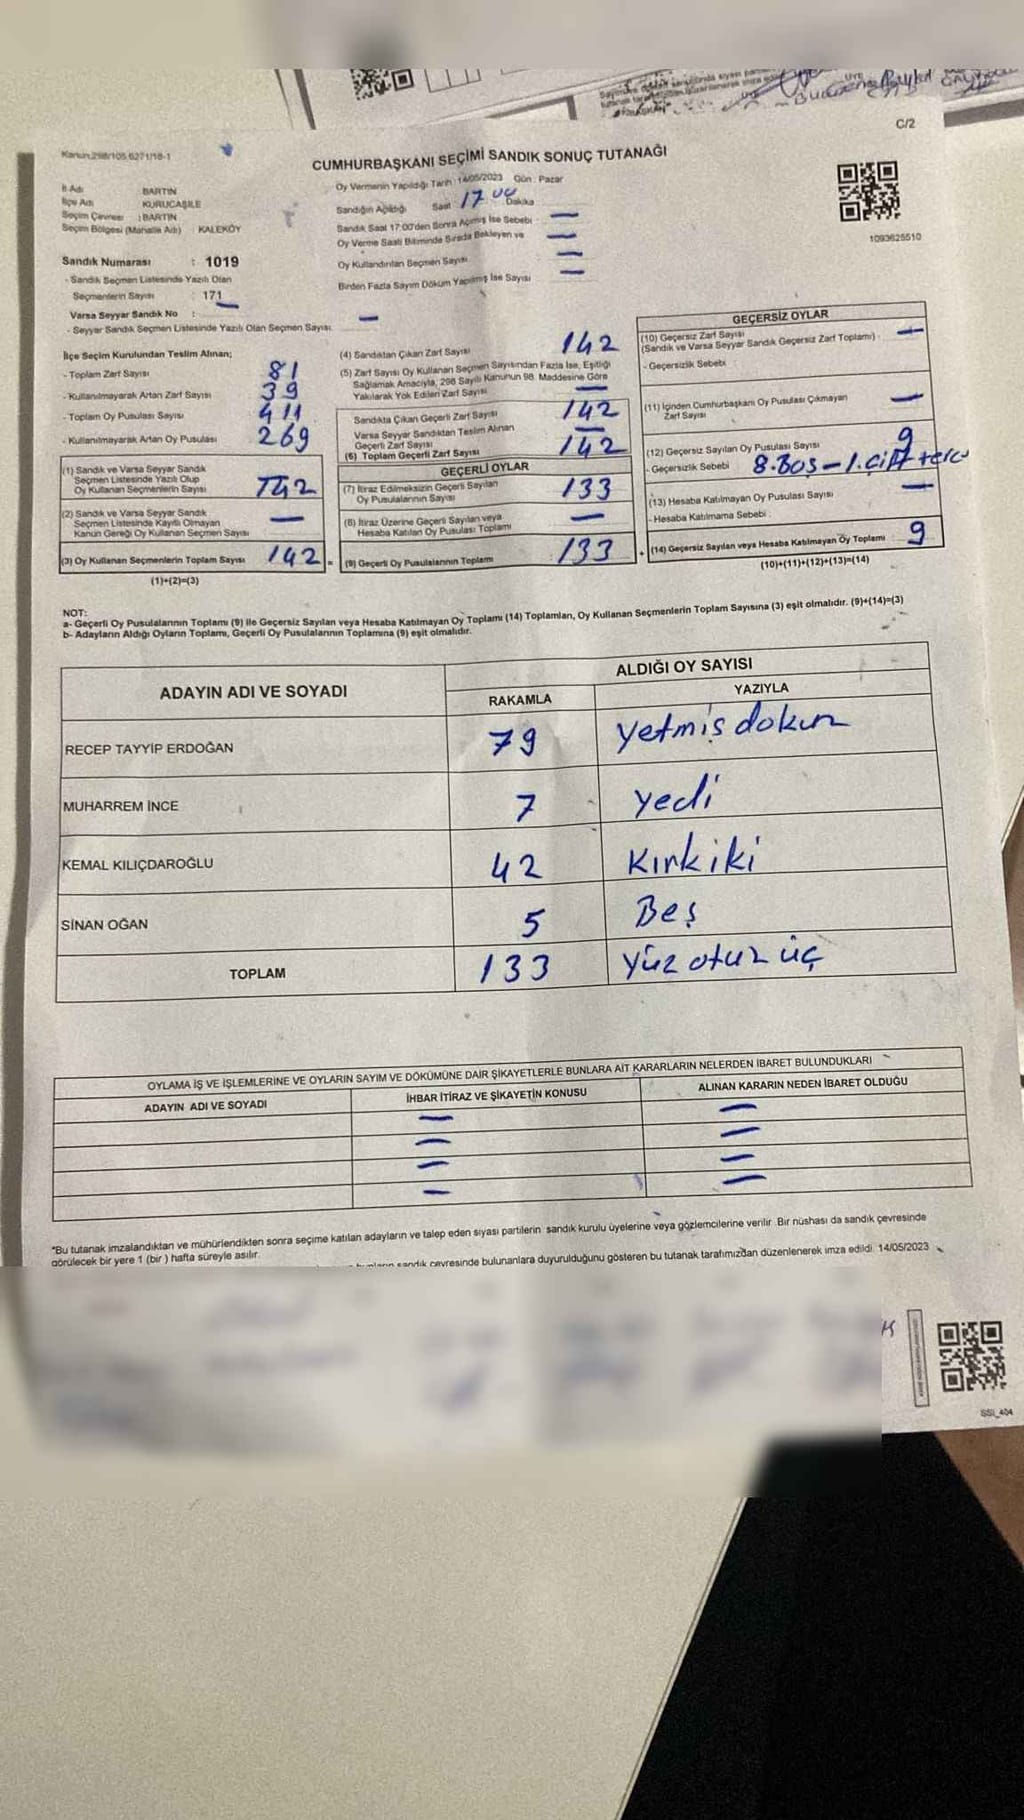 C/2
Kanun:298/105 6271/18-1
CUMHURBAŞKANI SEÇİMİ SANDIK SONUÇ TUTANAĞI
İl Adı BARTIN
İlçe Adı KURUCAŞİLE
Seçim Çevresi : BARTIN
Seçim Bölgesi (Mahalle Adı) : KALEKÖY
Oy Vermenin Yapıldığı Tarih: 14/05/2023 Gün : Pazar
Sandığın Açıldığı Saat 17 00 Dakika
Sandık Saat 17:00'den Sonra Açılmış İse Sebebi —
Oy Verme Saati Bitiminde Sırada Bekleyen ve —
Oy Kullandırılan Seçmen Sayısı —
Birden Fazla Sayım Döküm Yapılmış İse Sayısı —
1093625510
Sandık Numarası : 1019
- Sandık Seçmen Listesinde Yazılı Olan
Seçmenlerin Sayısı : 171
Varsa Seyyar Sandık No : —
- Seyyar Sandık Seçmen Listesinde Yazılı Olan Seçmen Sayısı: —
İlçe Seçim Kurulundan Teslim Alınan;
- Toplam Zarf Sayısı 81
- Kullanılmayarak Artan Zarf Sayısı 39
- Toplam Oy Pusulası Sayısı 411
- Kullanılmayarak Artan Oy Pusulası 269
(1) Sandık ve Varsa Seyyar Sandık
Seçmen Listesinde Yazılı Olup
Oy Kullanan Seçmenlerin Sayısı 142
(2) Sandık ve Varsa Seyyar Sandık
Seçmen Listesinde Kayıtlı Olmayan
Kanun Gereği Oy Kullanan Seçmen Sayısı —
(3) Oy Kullanan Seçmenlerin Toplam Sayısı 142 =
(1)+(2)=(3)
(4) Sandıktan Çıkan Zarf Sayısı 142
(5) Zarf Sayısı Oy Kullanan Seçmen Sayısından Fazla İse, Eşitliği
Sağlamak Amacıyla, 298 Sayılı Kanunun 98. Maddesine Göre
Yakılarak Yok Edilen Zarf Sayısı —
Sandıkta Çıkan Geçerli Zarf Sayısı 142
Varsa Seyyar Sandıktan Teslim Alınan
Geçerli Zarf Sayısı —
(6) Toplam Geçerli Zarf Sayısı 142
GEÇERLİ OYLAR
(7) İtiraz Edilmeksizin Geçerli Sayılan
Oy Pusulalarının Sayısı 133
(8) İtiraz Üzerine Geçerli Sayılan veya
Hesaba Katılan Oy Pusulası Toplamı —
(9) Geçerli Oy Pusulalarının Toplamı 133 +
GEÇERSİZ OYLAR
(10) Geçersiz Zarf Sayısı
(Sandık ve Varsa Seyyar Sandık Geçersiz Zarf Toplamı) : —
- Geçersizlik Sebebi
(11) İçinden Cumhurbaşkanı Oy Pusulası Çıkmayan
Zarf Sayısı —
(12) Geçersiz Sayılan Oy Pusulası Sayısı 9
- Geçersizlik Sebebi 8.Boş - 1.Çift
(13) Hesaba Katılmayan Oy Pusulası Sayısı —
- Hesaba Katılmama Sebebi :
(14) Geçersiz Sayılan veya Hesaba Katılmayan Oy Toplamı 9
(10)+(11)+(12)+(13)=(14)
NOT:
a- Geçerli Oy Pusulalarının Toplamı (9) ile Geçersiz Sayılan veya Hesaba Katılmayan Oy Toplamı (14) Toplamları, Oy Kullanan Seçmenlerin Toplam Sayısına (3) eşit olmalıdır. (9)+(14)=(3)
b- Adayların Aldığı Oyların Toplamı, Geçerli Oy Pusulalarının Toplamına (9) eşit olmalıdır.
ADAYIN ADI VE SOYADI
ALDIĞI OY SAYISI
RAKAMLA YAZIYLA
RECEP TAYYİP ERDOĞAN 79 yetmiş dokuz
MUHARREM İNCE 7 yedi
KEMAL KILIÇDAROĞLU 42 Kırk iki
SİNAN OĞAN 5 Beş
TOPLAM 133 yüz otuz üç
OYLAMA İŞ VE İŞLEMLERİNE VE OYLARIN SAYIM VE DÖKÜMÜNE DAİR ŞİKAYETLERLE BUNLARA AİT KARARLARIN NELERDEN İBARET BULUNDUKLARI
ADAYIN ADI VE SOYADI İHBAR İTİRAZ VE ŞİKAYETİN KONUSU ALINAN KARARIN NEDEN İBARET OLDUĞU
— —
— —
— —
— —
*Bu tutanak imzalandıktan ve mühürlendikten sonra seçime katılan adayların ve talep eden siyasi partilerin sandık kurulu üyelerine veya gözlemcilerine verilir. Bir nüshası da sandık çevresinde
görülecek bir yere 1 (bir ) hafta süreyle asılır.
sandık çevresinde bulunanlara duyurulduğunu gösteren bu tutanak tarafımızdan düzenlenerek imza edildi. 14/05/2023
SSI_404